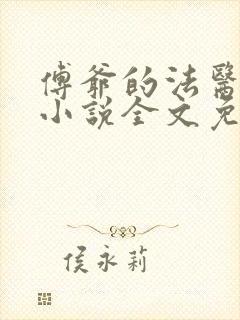 傅爺的法醫
小說全文免
侯永莉